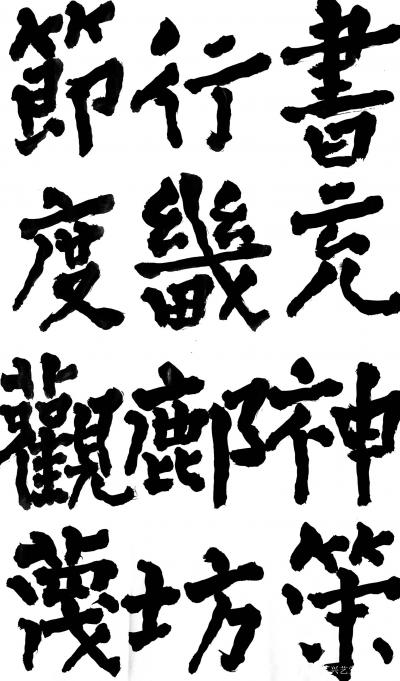 書充神策
行畿鄜坊
節度觀